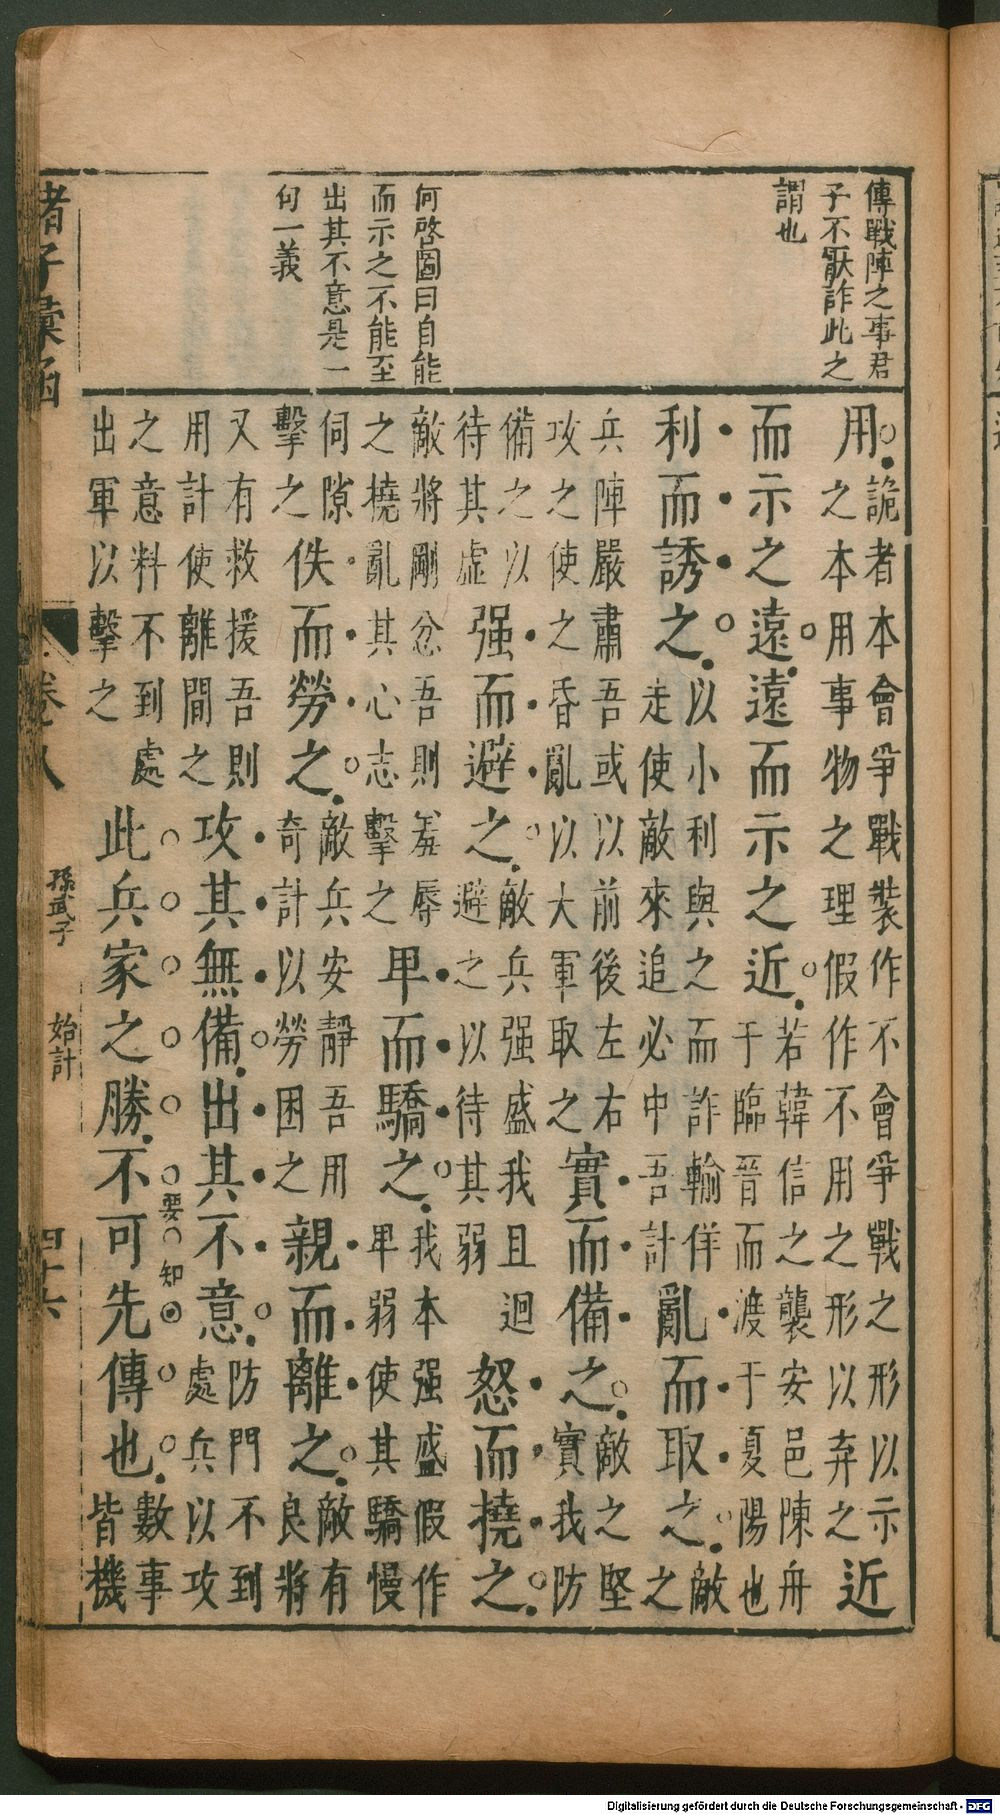 傳戰陣之事君
子不厭詐此之
謂也
何啓圖曰自能
而示之不能至
出其不意是一
句一義
用詭者本會爭戰裝作不會爭戰之形以示之本用事物之理假作不用之形以弃之近
而示之遠遠而示之近若韓信之襲安邑陳舟于臨晉而渡于夏陽也
利而誘之以小利與之而詐輸佯走使敵來追必中吾計亂而取之敵之
兵陣嚴肅吾或以前後左右攻之使之昏亂以大軍取之實而備之敵之堅實我防
備之以待其虛强而避之敵兵强盛我且迴避之以待其弱怒而撓之
敵將剛忿吾則羞辱之撓亂其心志擊之卑而驕之我本强盛假作卑弱使其驕慢
伺隙擊之佚而勞之敵兵安靜吾用奇計以勞困之親而離之敵有良將
又有救援吾則用計使離間之攻其無備出其不意防門不到處兵以攻
要知
之意料不到處出軍以擊之此兵家之勝不可先傳也數事皆機
諸子彙函
卷八
孫武子
始計
四十六
Digitalisierung gefördert durch die Deutsche Forschungsgemeinschaft - DFG